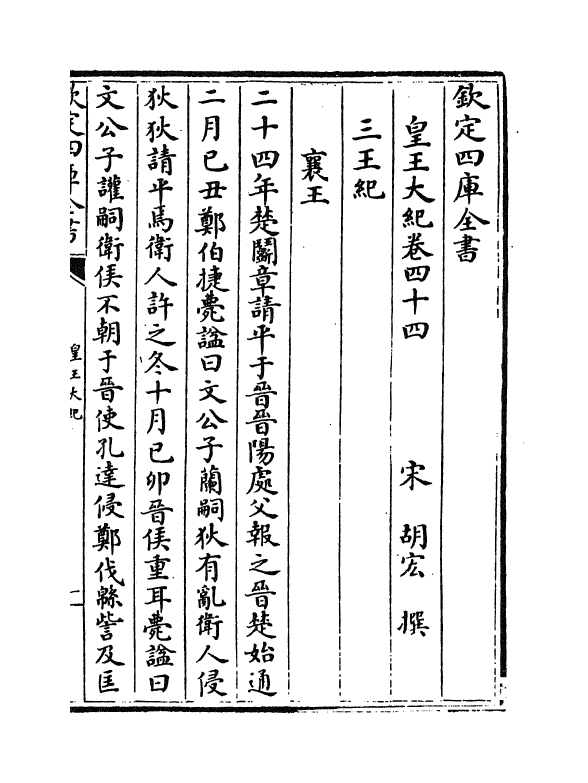 欽定四庫全書
皇王大紀卷四十四
宋 胡宏 撰
三王紀
襄王
二十四年楚鬬章請平于晉晉陽處父報之晉楚始通
二月已丑鄭伯捷薨諡曰文公子蘭嗣狄有亂衛人侵
狄狄請平焉衛人許之冬十月已卯晉侯重耳薨諡曰
文公子讙嗣衛侯不朝于晉使孔達侵鄭伐緜訾及匡
皇王大紀